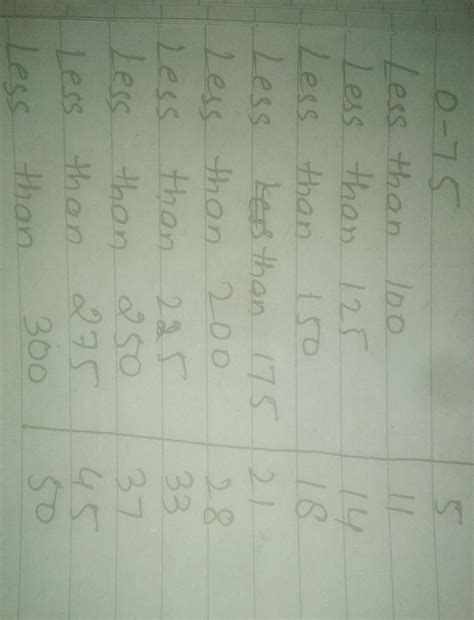 0-75 5
Less than 100 11
Less than 125 14
Less than 150 18
Less than 175 21
Less than 200 28
Less than 225 33
Less than 250 37
Less than 275 45
Less than 300 50